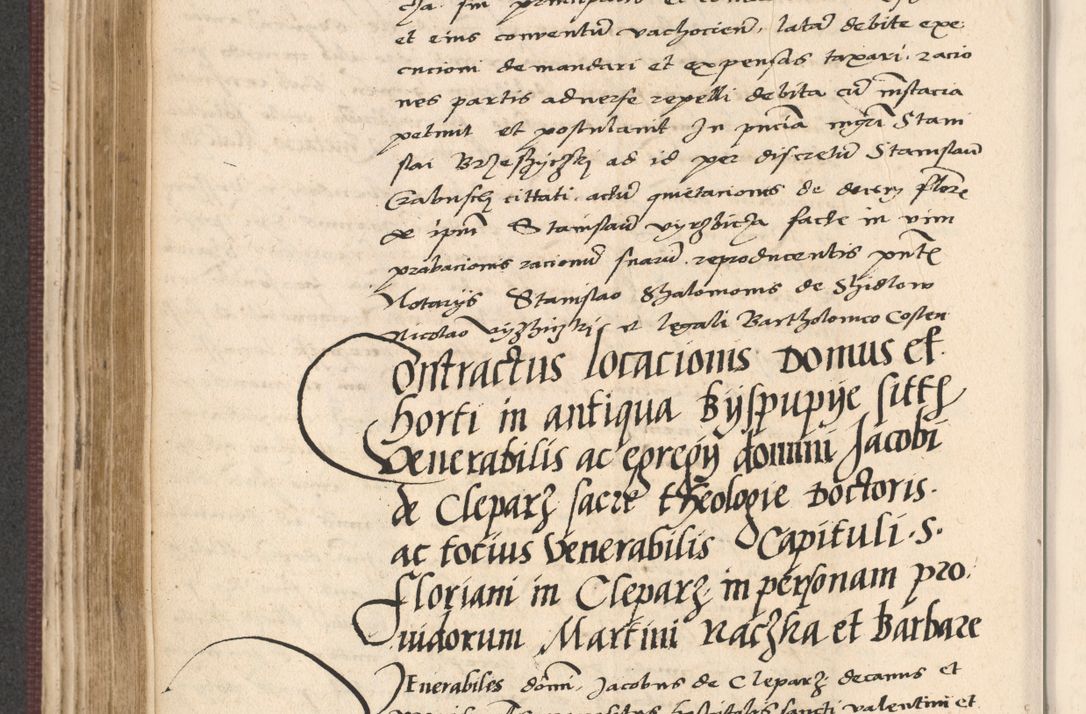 et eius conventu͞ vachocien͞. lata͞ debite exe
cucioni demandari et expensas taxari. racio
nes partis adverse repelli debita cu͞ i͞nstacia
petiuit et postulauit In p͞ncia m͞gri Stani
slai Brzeszyczkj ad id per discretu͞ Stanislau͞
Gabusch cittati. actu͞ quietacionis de
p ip͞m Stanislau͞ vyrzbicza facte in vim
probacionis racionu͞ suaru͞. reproducentis p͞nte
Notarijs Stanislao Shalomonis de Shidlow
Nicolao et legali Bartholomeo Costen
Contractus locacionis domus et
horti in antiqua Byspupije sitte
Venerabilis ac egregij domini Jacobi
de Cleparz sacre theologie doctoris.
ac tocius Venerabilis Capituli. S.
Floriani in Cleparz in personam pro
uidorum Martini Raczka et Barbare
Venerabiles do͞mi. Jacobus de Cleparz decanus et
hospitalis sancti valentini et